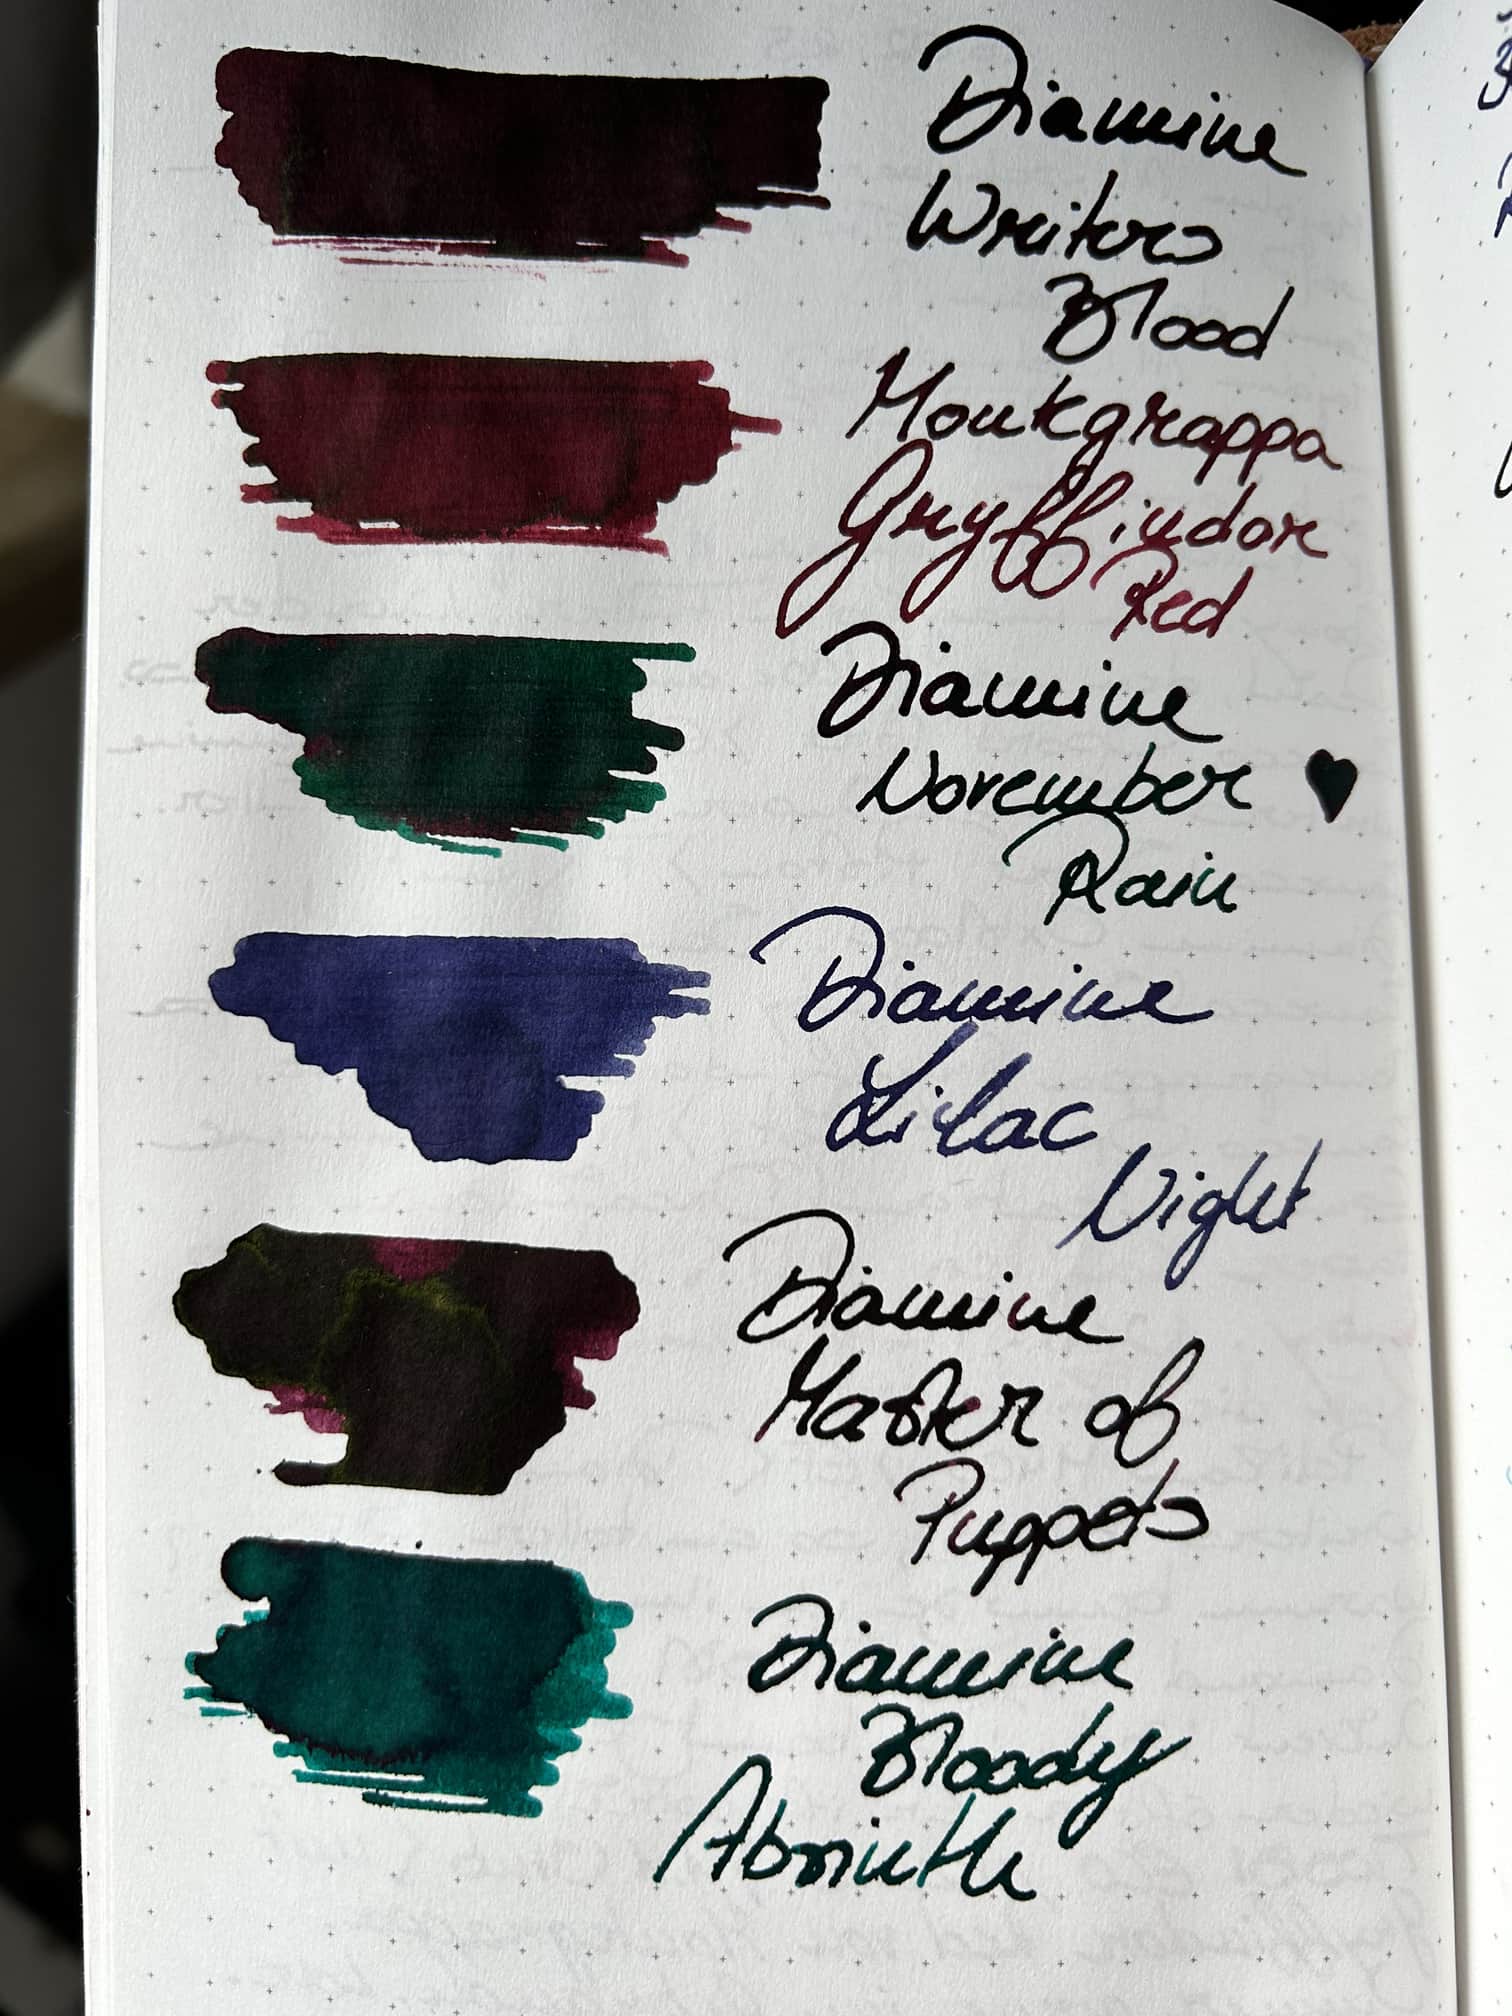 Diamine
Writers
Blood
Montegrappa
Gryffindor
Red
Diamine
November
Rain
Diamine
Lilac
Night
Diamine
Master of
Puppets
Diamine
Bloody
Absinth